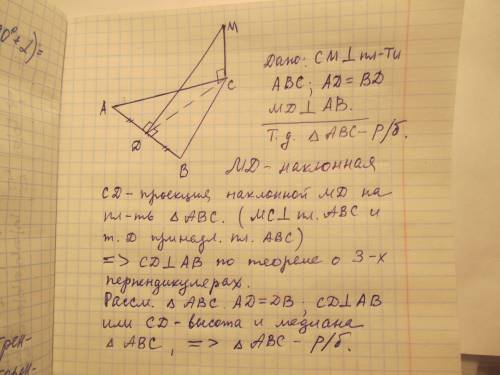 0°+2)=
M
A
C
D
B
Дано: CM⊥пл-ти
ABC; AD=BD
MD⊥AB.
Т.д. △ABC-Р/б.
MD-наклонная
CD-проекция наклонной MD на
пл-ть △ABC. (MC⊥пл. ABC и
т. D принадл. пл. ABC)
=> CD⊥AB по теореме о 3-х
перпендикулерах.
Рассм. △ABC. AD=DB; CD⊥AB
или CD-высота и медиана
△ABC, => △ABC-Р/б.
трен-